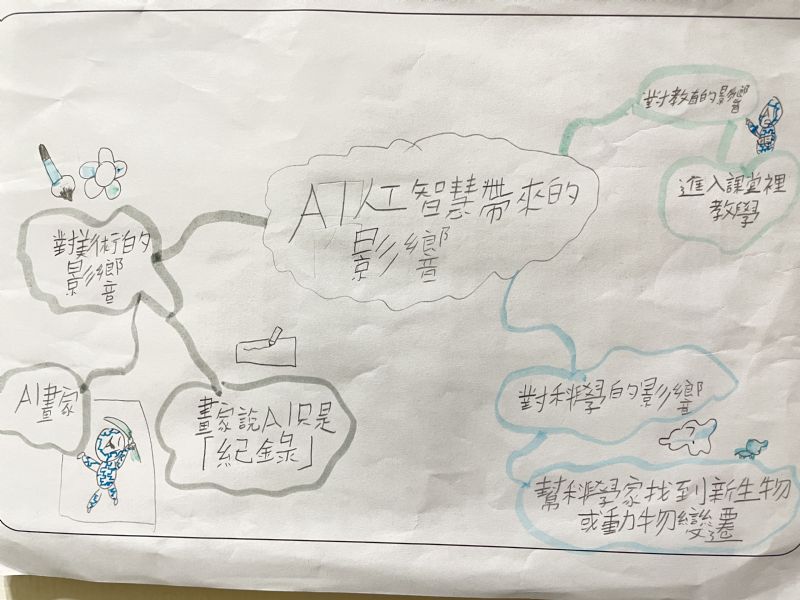 AI人工智慧帶來的
影響
對美術的
影響
AI畫家
畫家說AI只是
「紀錄」
對教育的影響
進入課堂裡
教學
對科學的影響
幫科學家找到新生物
或動物變遷